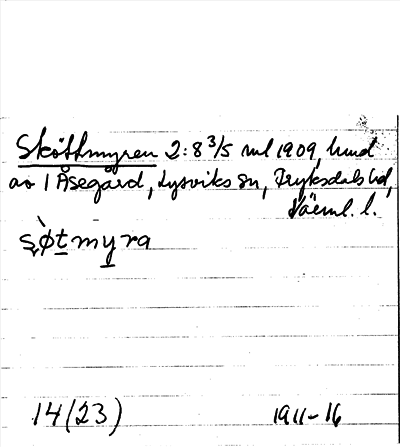 Sköttmyren 2:8 3/5 ml 1909, hmd
av 1 Åsegård, Lysviks sn, Fryksdals hd,
Värml. l.
s̨ø̀tmyra
14(23) 1911-16